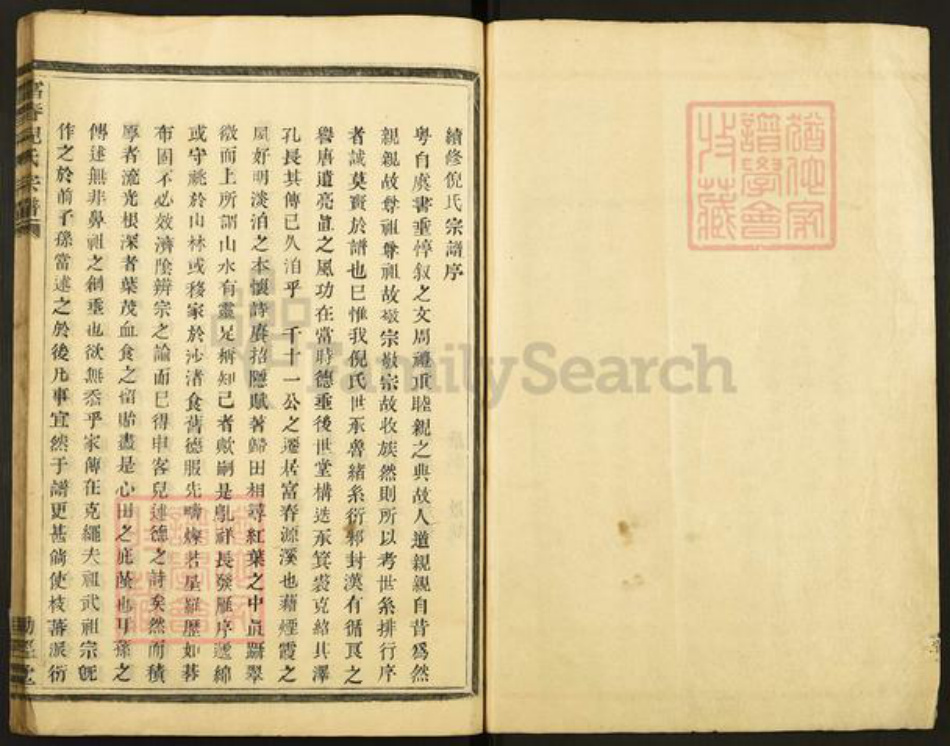 續修倪氏宗譜序
粵自虞書重惇敘之文周禮重睦親之典故人道親親自昔爲然
親親故尊祖尊祖故敬宗敬宗故收族然則所以考世系排行序
者誠莫賣於譜也已惟我倪氏世承魯緒系衍郳封漢有循良之
譽唐遺亮直之風功在當時德垂後世堂構迭承箕裘克紹其澤
孔長其傳已久洎乎 千十一公之遷居富春源溪也藉煙霞之
風好明淡泊之本懷詩賡招隱賦著歸田相尋紅葉之中眞躡翠
微而上所謂山水有靈足稱知己者歟嗣是凫祥長發雁序遞綿
或守祧於山林或移家於沙渚食舊德服先疇燦若星羅歷如棊
布固不必效濟陰辨宗之論而已得申客兒述德之詩矣然而積
厚者流光根深者葉茂血食之留貽盡是心田之庇蔭也耳孫之
傳述無非鼻祖之創垂也欲無忝乎家傳在克繩夫祖武祖宗旣
作之於前子孫當述之於後凡事宜然于譜更甚倘使枝蕃派衍
富春倪氏宗譜
猶他家譜學會收藏
FamilySearch